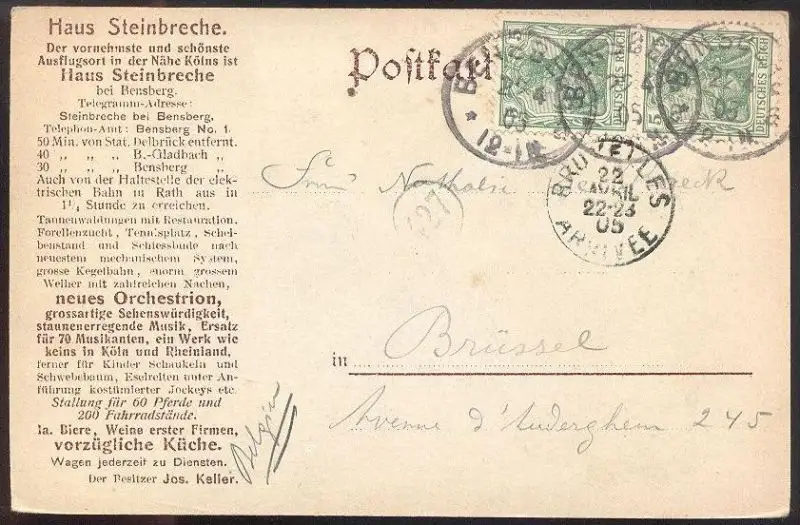 Haus Steinbreche.
Der vornehmste und schönste
Ausflugsort in der Nähe Kölns ist
Haus Steinbreche
bei Bensberg.
Telegramm-Adresse:
Steinbreche bei Bensberg.
Telephon-Amt: Bensberg No. 1.
50 Min. von Stat. Delbrück entfernt.
40 „ „ „ B.-Gladbach „
30 „ „ „ Bensberg „
Auch von der Haltestelle der elek-
trischen Bahn in Rath aus in
1¼ Stunde zu erreichen.
Tannenwaldungen mit Restauration,
Forellenzucht, Tennisplatz, Schei-
benstand und Schiessbude nach
neuestem mechanischem System,
grosse Kegelbahn, enorm grossem
Weiher mit zahlreichen Nachen,
neues Orchestrion,
grossartige Sehenswürdigkeit,
staunenerregende Musik, Ersatz
für 70 Musikanten, ein Werk wie
keins in Köln und Rheinland,
ferner für Kinder Schaukeln und
Schwebebaum, Eselreiten unter An-
führung kostümierter Jockeys etc.
Stallung für 60 Pferde und
200 Fahrradstände.
Ia. Biere, Weine erster Firmen,
vorzügliche Küche.
Wagen jederzeit zu Diensten.
Der Besitzer Jos. Keller.
Belgien
Postkart
DEUTSCHES REICH
DEUTSCHES REICH
12-1N
22
AVRIL
22-23
05
ARRIVEE
427
in Brüssel
Avenue d'Auderghem 245